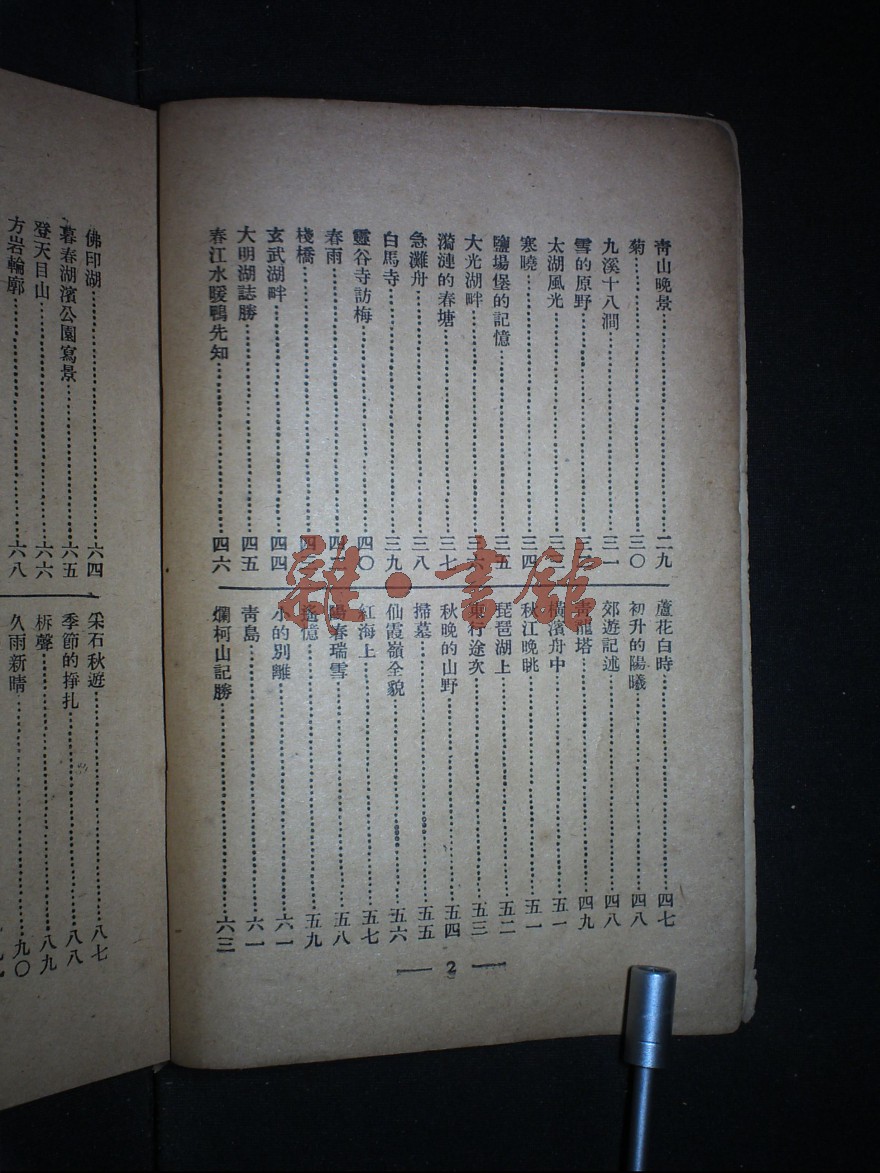 青山晚景……二九
菊……三〇
九溪十八澗……三一
雪的原野……
太湖風光……
寒曉……三四
鹽場堡的記憶……三五
大光湖畔……三六
漪漣的春塘……三七
急灘舟……三八
白馬寺……三九
靈谷寺訪梅……四〇
春雨……
棧橋……
玄武湖畔……四四
大明湖誌勝……四五
春江水暖鴨先知……四六
蘆花白時……四七
初升的陽曦……四八
郊遊記述……四八
青龍塔……四九
橫濱舟中……五一
秋江晚眺……五一
琵琶湖上……五二
東行途次……五三
秋晚的山野……五四
掃墓……五五
仙霞嶺全貌……五六
紅海上……五七
陽春瑞雪……五八
遙憶……五九
小的別離……六一
青島……六一
爛柯山記勝……六三
— 2 —
佛印湖……六四
暮春湖濱公園寫景……六五
登天目山……六六
方岩輪廓……六八
采石秋遊……八七
季節的掙扎……八八
柝聲……八九
久雨新晴……九〇
雜·書館